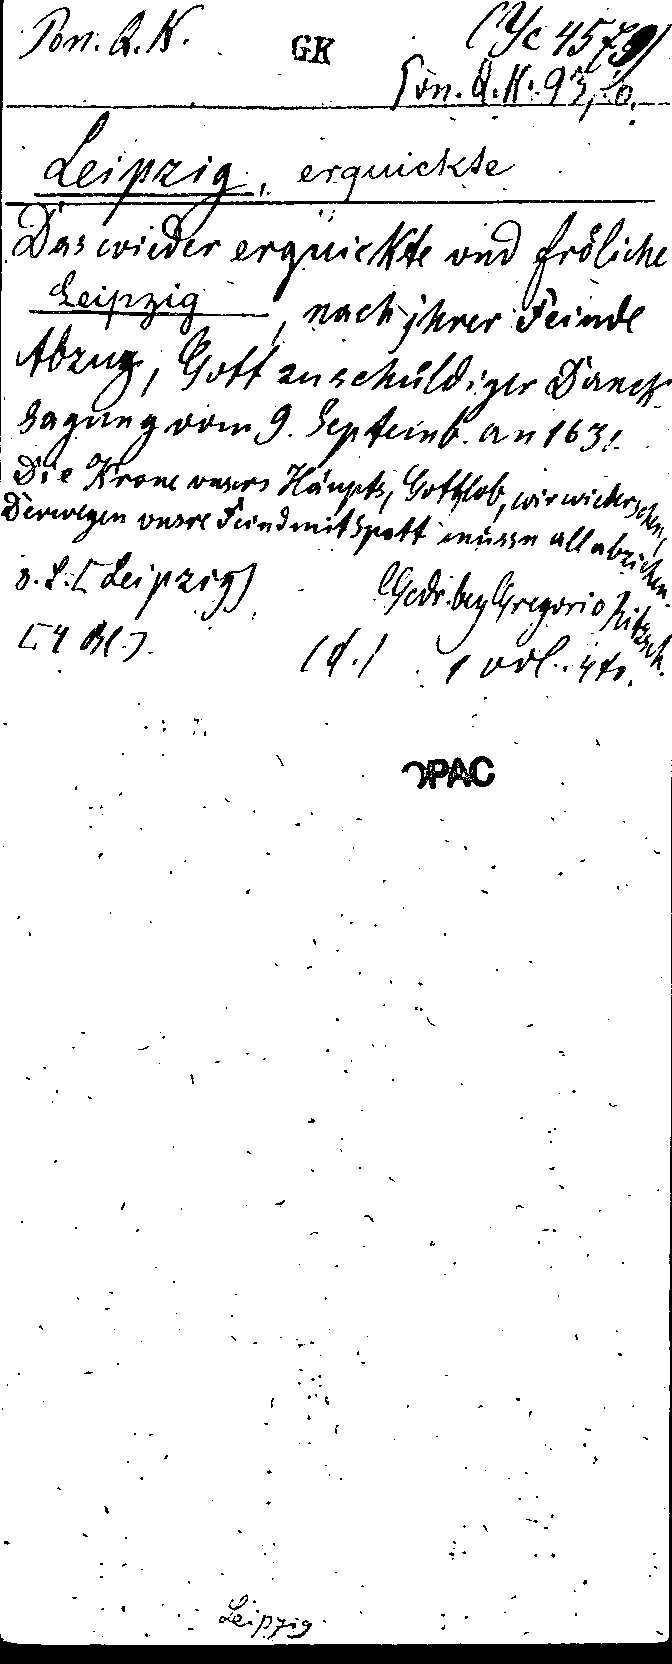 Pon. Q. K. GK (Yc 4579)
Pon. Q. K. 93, 6.
Leipzig, erquickte
Das wieder erquickte vnd fröliche
Leipzig, nach jhrer Feinde
Abzug, Gott zu schuldiger Danck-
sagung vom 9. Septemb. an 1631.
Die Krone vnsers Häupts, Gottlob, wir wiedersehen,
Derwegen vnsre Feind mit Spott müssn all abziehen.
s. l. [Leipzig] Gedr. bey Gregorio Ritzsch.
[4 Bl.] (d.) 4to.
OPAC
Leipzig